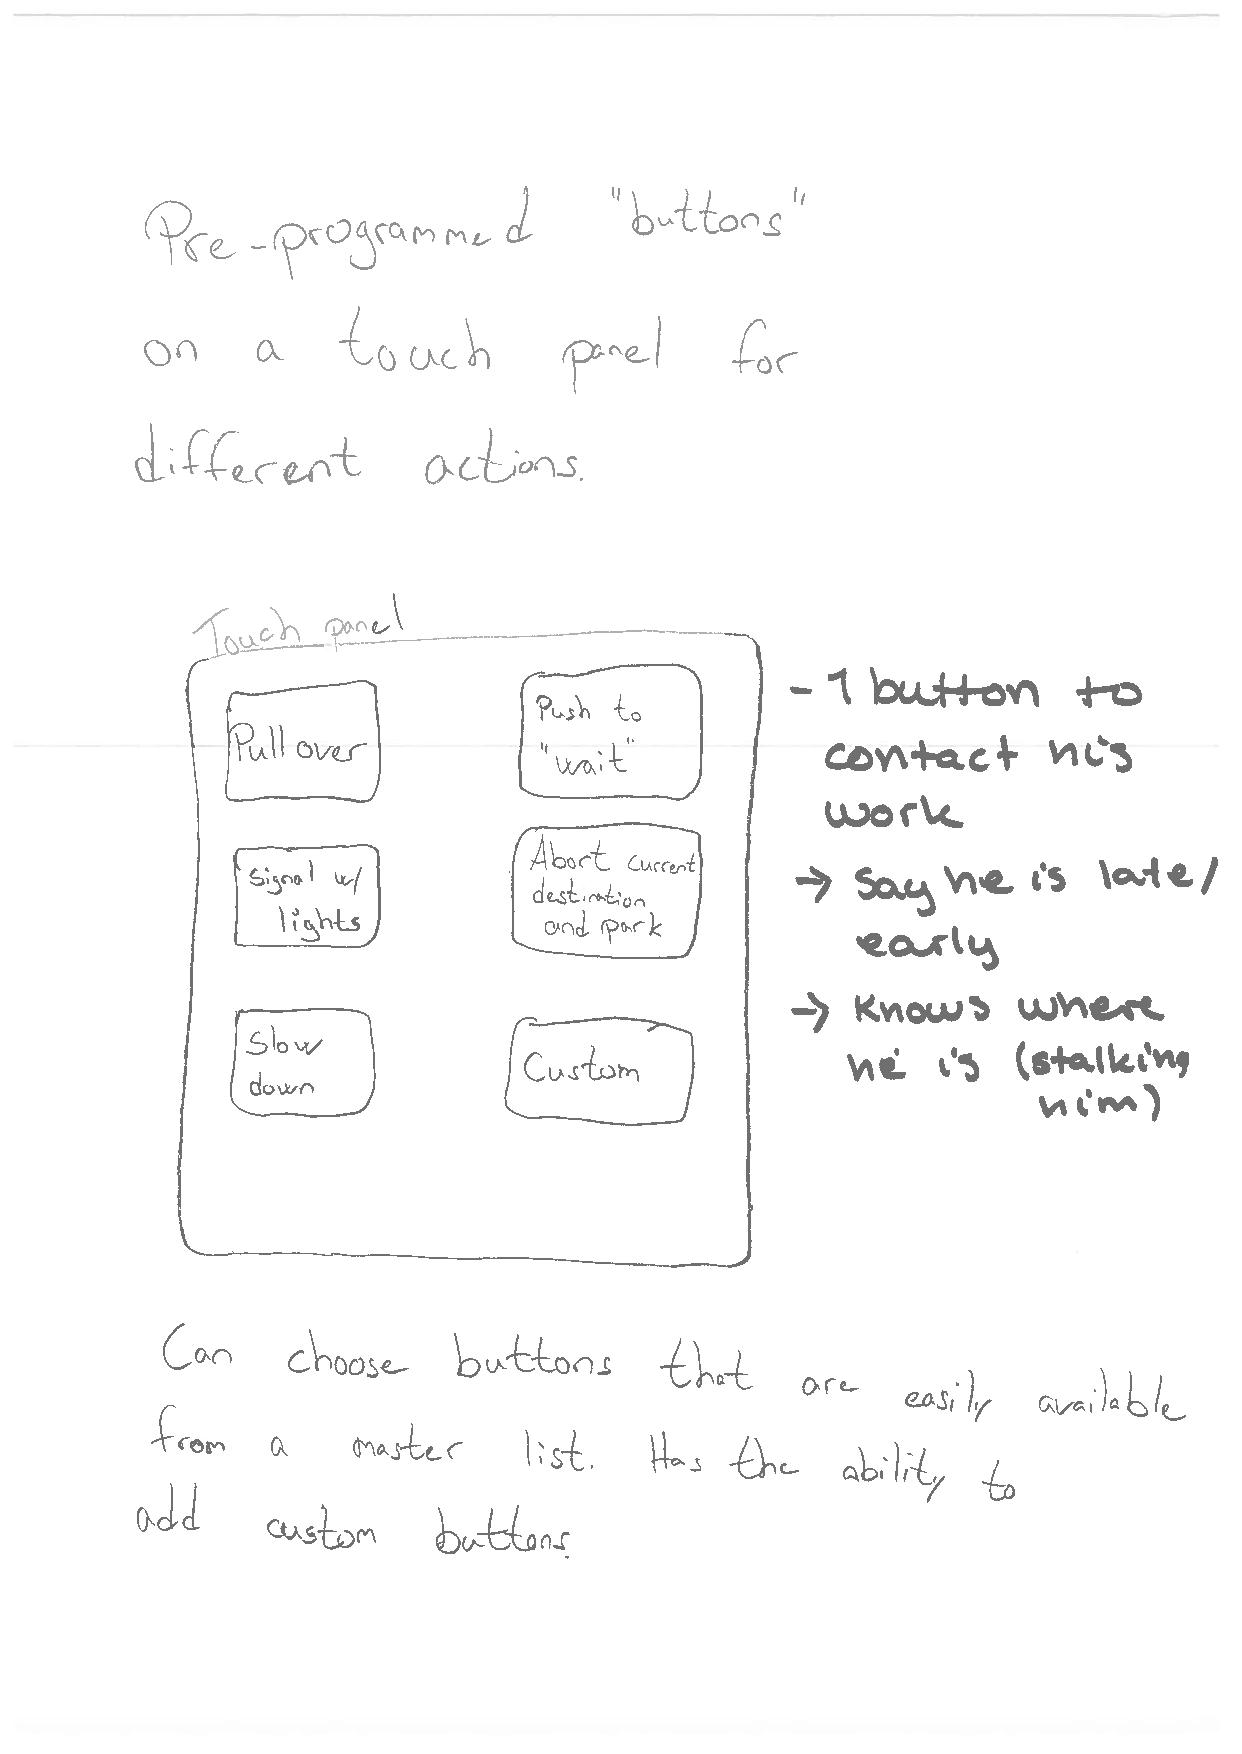 Pre-programmed "buttons"
on a touch panel for
different actions.
Touch panel
Pull over
Push to
"wait"
Signal w/
lights
Abort current
destination
and park
Slow
down
Custom
- 1 button to
contact his
work
→ Say he is late/
early
→ Knows where
he is (stalking
him)
Can choose buttons that are easily available
from a master list. Has the ability to
add custom buttons.